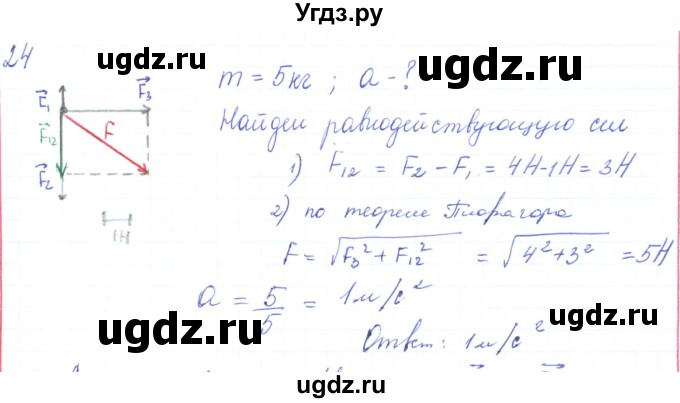 Угдз.ру
24
ugdz.ru ugdz.ru
m = 5кг ; a - ?
F₁ F₃
Найдем равнодействующую сил
F₁₂ F
1) F₁₂ = F₂ - F₁ = 4Н-1Н = 3Н
F₂
2) по теореме Пифагора
1Н
F = √F₃² + F₁₂² = √4²+3² = 5Н
a = 5/5 = 1м/с²
ugdz.ru ugdz.ru
Ответ: 1м/с²
ugdz.ru